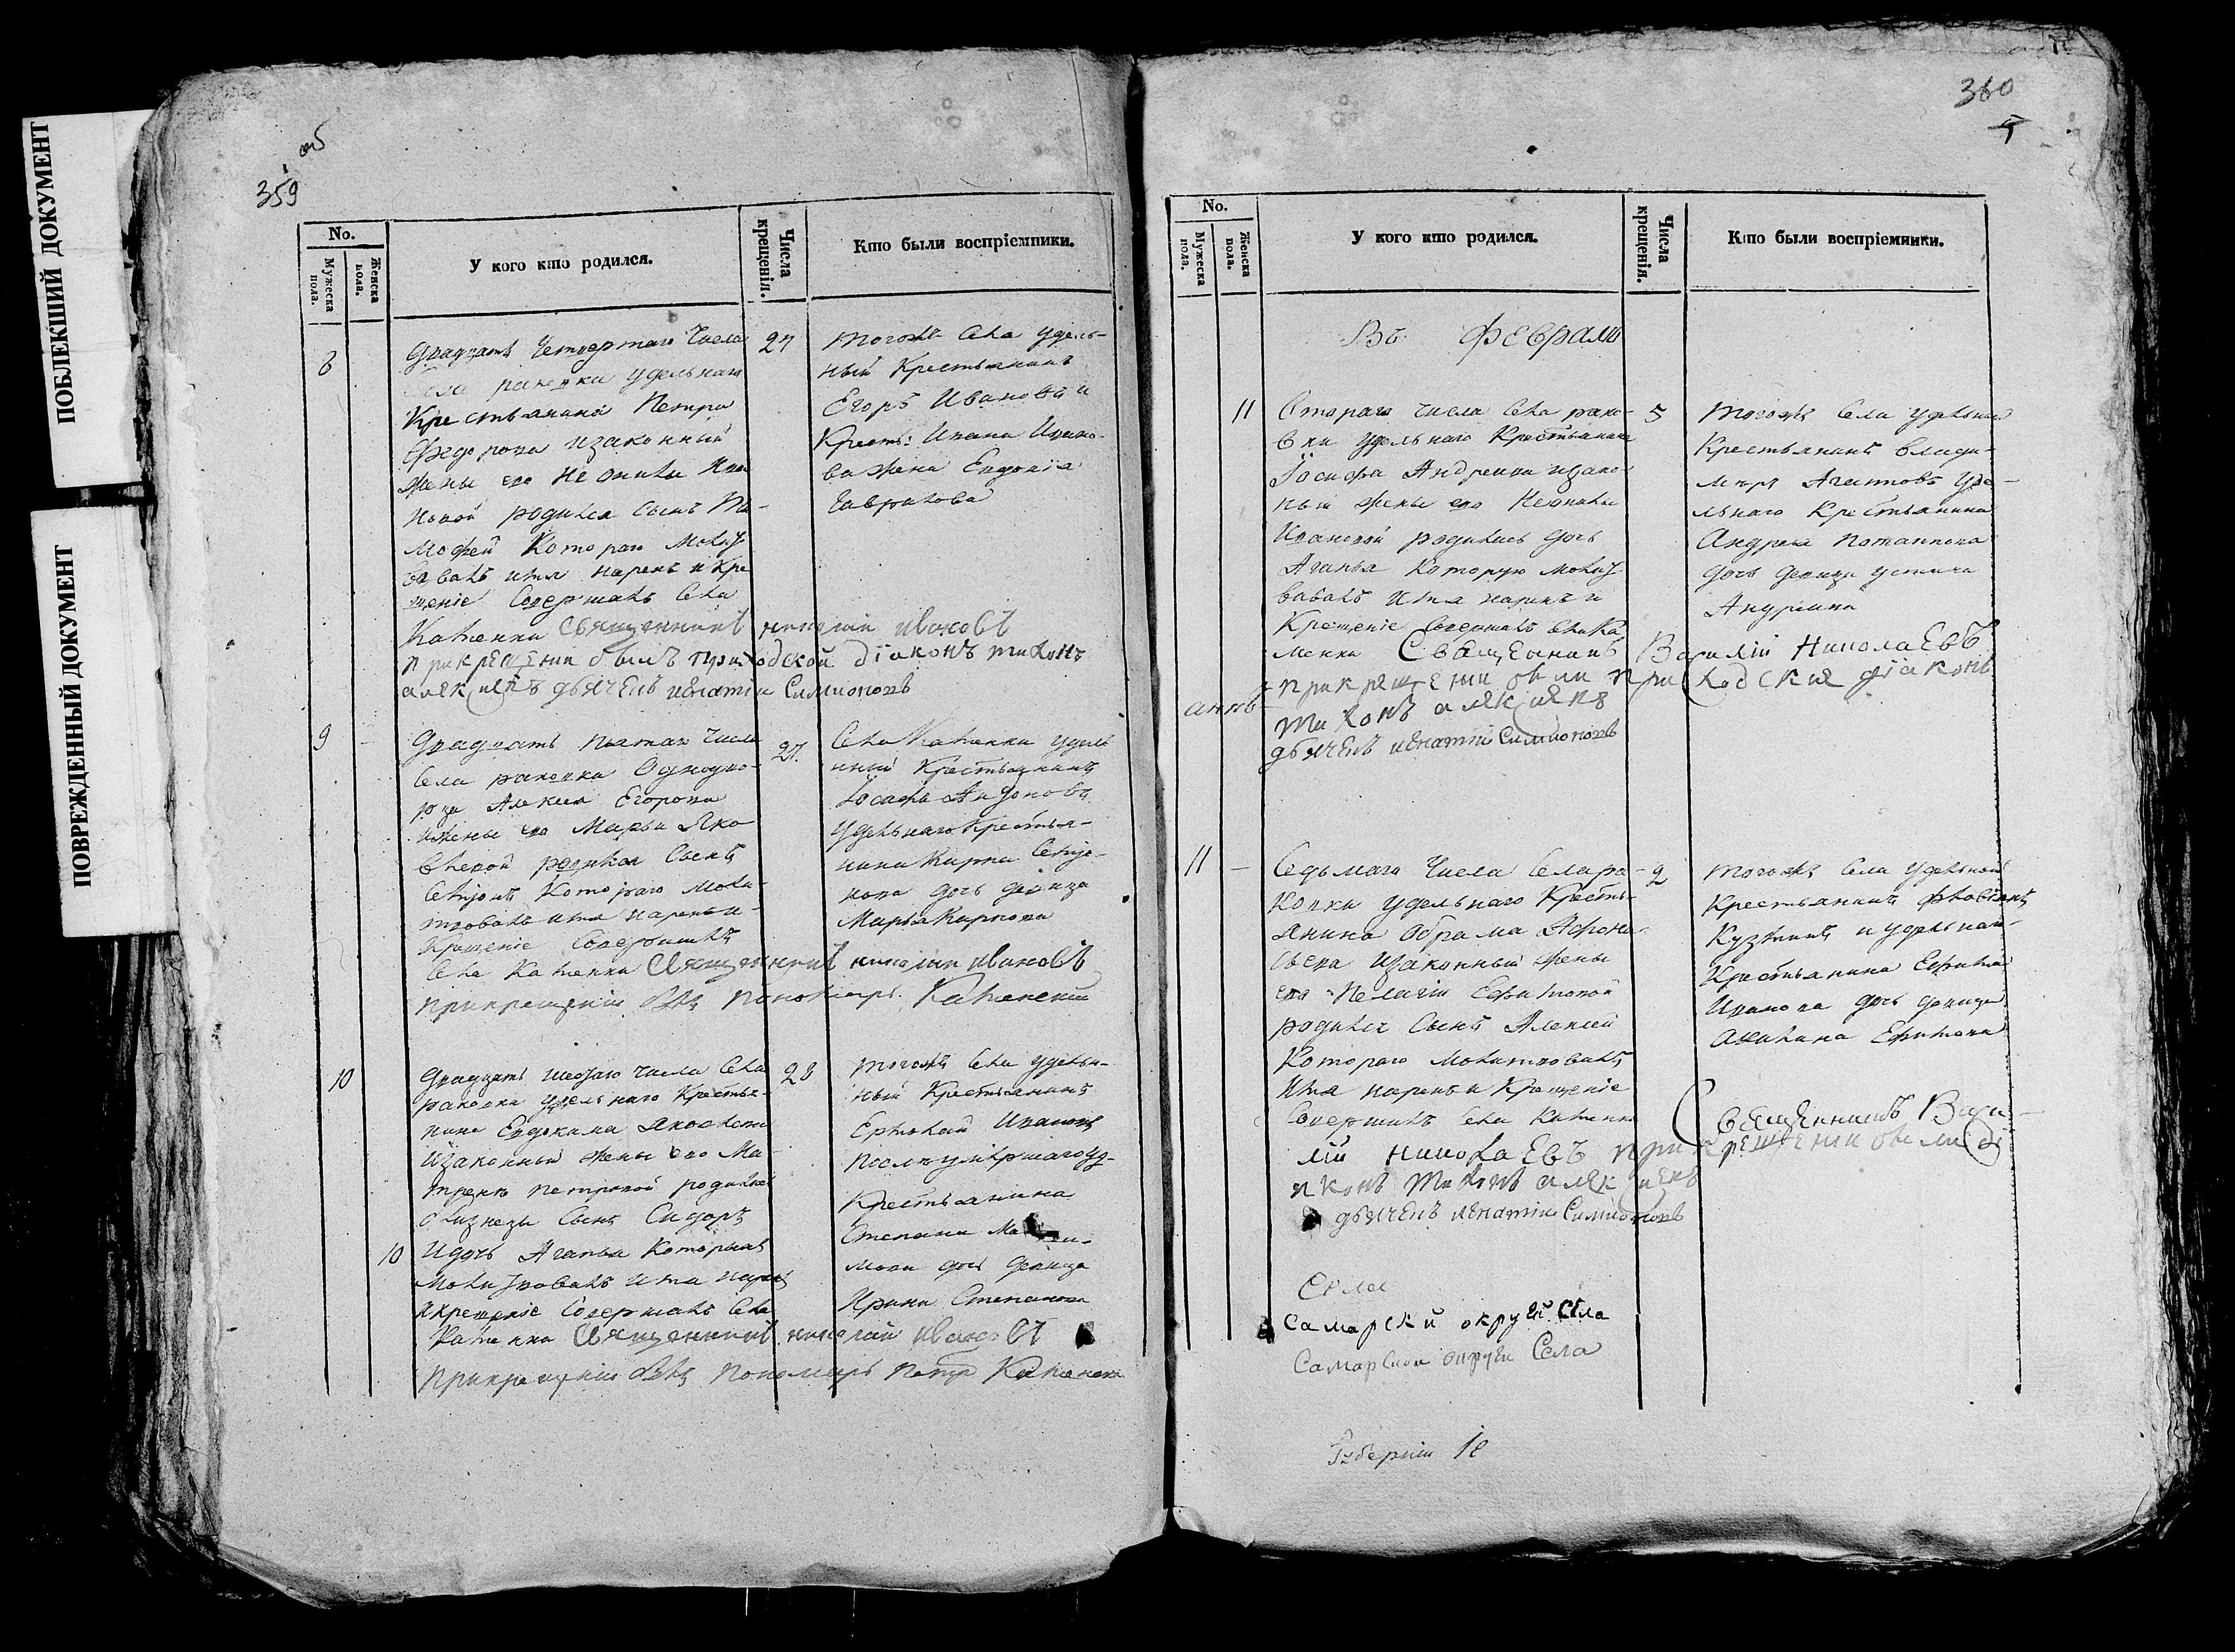 ПОБЛЕКШИЙ ДОКУМЕНТ
ПОВРЕЖДЕННЫЙ ДОКУМЕНТ
об
359
No.
Мужеска пола.
Женска пола.
У кого кто родился.
Числа крещенія.
Кто были воспріемники.
8
27
Двадцать Четвертаго Числа
Села раковки удельнаго
Крестьянина Петра
Федорова изаконный
жены его
новой родился Сынъ Ти-
мофей Котораго молит
вовалъ имя нарекъ и Кре
щеніе Совершалъ Села
Каменки Священникъ николай ивановъ
прикрещении былъ приходской діаконъ тихонъ
аляксиевъ дьяченъ игнатии Симионовъ
тогожъ Села удель-
ный Крестьянинъ
Егоръ Ивановъ и
Крест: Ивана Ивано-
ва жена Евдокія
Гаврилова
9
27.
Двадцать пятаго числа
Села раковки Однодво-
рца Алексея Егорова
ижены его Марьи Яко
влевой родился Сынъ
Котораго моли-
твовалъ имя нарекъ и
Крещеніе Совершилъ
Села Каменки Священникъ николаи ивановъ
прикрещеніи былъ пономарь Каменский
Села Каменки удель
нный Крестьянинъ
Іосафъ
удельнаго Крестья-
нина Карпа
нова дочь девица
Марья Карпова
10
28
Двадцать шестаго числа Села
раковки удельнаго Крестья-
нина Евдокима Яковлева
изаконный жены его Ма-
трены петровой родились
близнецы Сынъ Сидоръ
10
Идочь Агапья Которымъ
молитвовалъ имя нарекъ
икрещеніе Совершалъ Села
Каменки Священникъ николай ивановъ
прикрещеніи былъ пономарь петръ Каменски
тогожъ Села удельн-
ный Крестьянинъ
Ермолай Ивановъ
После умершаго уд-
Крестьянина
Степана
мова дочь девица
Ирина Степанова
360
No.
Мужеска пола.
Женска пола.
У кого кто родился.
Числа крещенія.
Кто были воспріемники.
Въ Февралѣ
11
5
Втораго числа Села рако-
вки удельнаго Крестьянина
Іосифа Андреива изако-
ный жены его
Ивановой родилась дочь
Агапья Которую молит
вовалъ имя нарекъ и
Крещеніе Совершалъ Села Ка
менки Священникъ Василій Николаевъ
прикрящении были приходския діаконъ
тихонъ аляксиявъ
дьяченъ игнатии Симионовъ
тогожъ Села удельный
Крестьянинъ Влади-
миръ Агаповъ уде-
льнаго Крестьянина
Андрея Потаппова
дочь девица устина
Андреива
11
2
Седьмаго Числа Села ра-
ковки удельнаго Кресть-
янина Абрама Афона-
сьева изаконный жены
его Пелагіи Ефимовой
родился Сынъ Алексей
Котораго молитвовалъ
Имя нарекъ и Крещеніе
Совершилъ Села Каменки Священникъ Васи-
лій николаевъ прикрещении были ді
яконъ тихонъ аляксиевъ
дьяченъ игнатии Симионовъ
тогожъ Села удельной
Крестьянинъ
Кузминъ и удельнай
Крестьянина Ефима
Иванова дочь девица
Акилина Ефимова
Села
Самарски округи Села
Самарскои округи Села
Губерніи